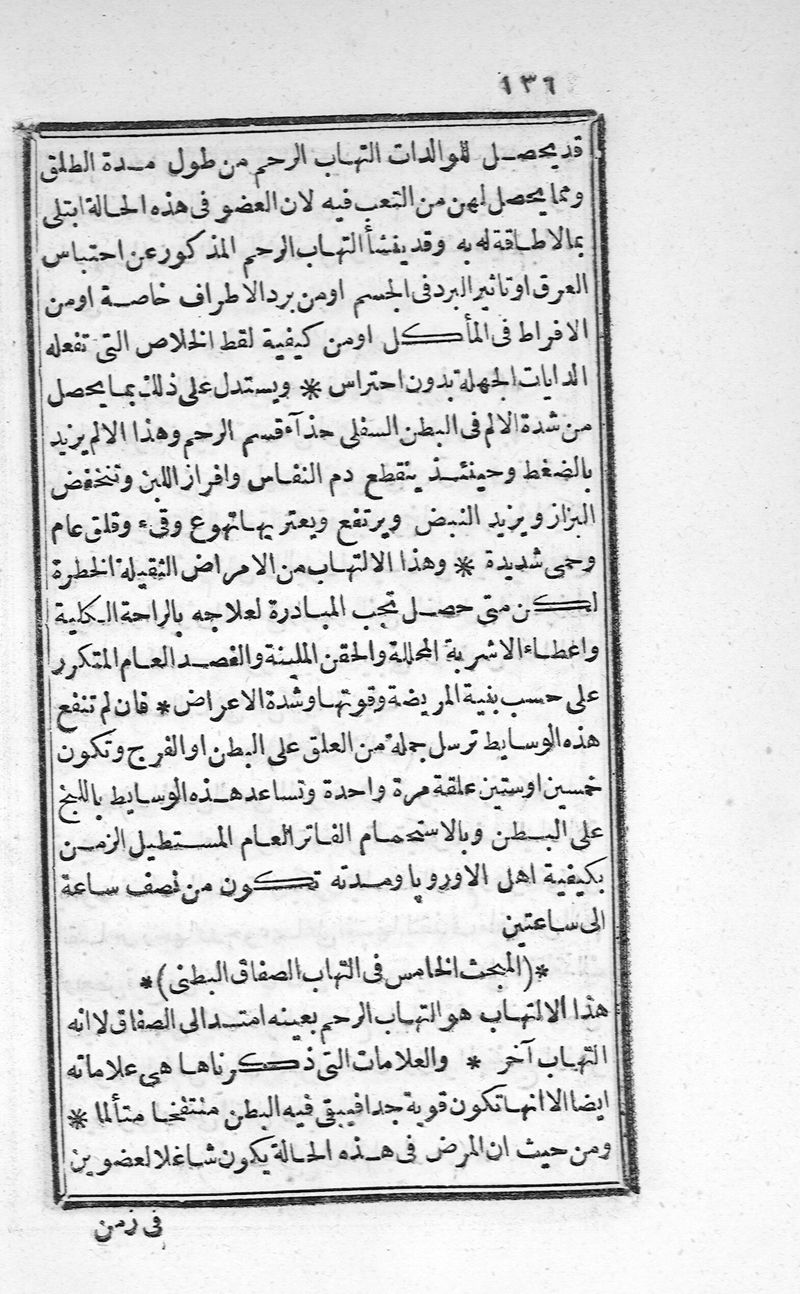 ١٣٦
قد يحصل للوالدات التهاب الرحم من طول مدة الطلق
ومما يحصل لهن من التعب فيه لان العضو فى هذه الحالة ابتلى
بما لا طاقة له به وقد ينشأ التهاب الرحم المذكور عن احتباس
العرق او تاثير البرد فى الجسم او من برد الاطراف خاصة او من
الافراط فى المأكل او من كيفية لقط الخلاص التى تفعله
الدايات الجهلة بدون احتراس * ويستدل على ذلك بما يحصل
من شدة الالم فى البطن السفلى حذآء قسم الرحم وهذا الالم يزيد
بالضغط وحينئذ ينقطع دم النفاس وافراز اللبن وتنخفض
البزاز ويزيد النبض ويرتفع ويعتريها تهوع وقىء وقلق عام
وحمى شديدة * وهذا الالتهاب من الامراض الثقيلة الخطرة
لكن متى حصل تجب المبادرة لعلاجه بالراحة الكلية
واعطاء الاشربة المحللة والحقن الملينة والفصد العام المتكرر
على حسب بنية المريضة وقوتها وشدة الاعراض * فان لم تنفع
هذه الوسايط ترسل جملة من العلق على البطن او الفرج وتكون
خمسين او ستين علقة مرة واحدة وتساعد هذه الوسايط باللبخ
على البطن وبالاستحمام الفاتر العام المستطيل الزمن
بكيفية اهل الاوروپا ومدته تكون من نصف ساعة
الى ساعتين
*(المبحث الخامس فى التهاب الصفاق البطنى)*
هذا الالتهاب هو التهاب الرحم بعينه امتد الى الصفاق لا انه
التهاب آخر * والعلامات التى ذكرناها هى علاماته
ايضا الا انها تكون قوية جدا فيبقى فيه البطن منتفخا متألما *
ومن حيث ان المرض فى هذه الحالة يكون شاغلا لعضوين
فى زمن